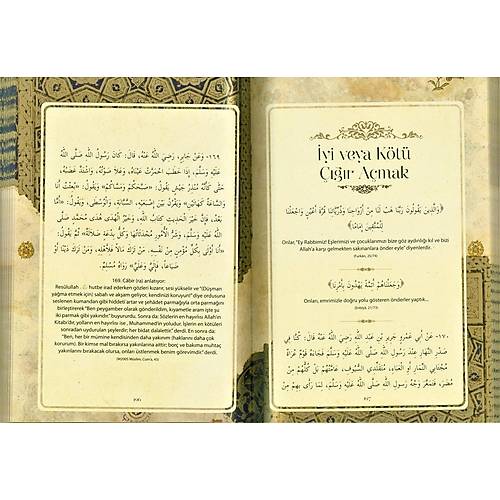 ١٦٩- وَعَنْ جَابِرٍ، رَضِيَ اللَّهُ عَنْهُ، قَالَ: كَانَ رَسُولُ اللَّهِ صَلَّى اللَّهُ
عَلَيْهِ وَسَلَّمَ، إِذَا خَطَبَ احْمَرَّتْ عَيْنَاهُ، وَعَلَا صَوْتُهُ، وَاشْتَدَّ غَضَبُهُ،
حَتَّى كَأَنَّهُ مُنْذِرُ جَيْشٍ يَقُولُ: «صَبَّحَكُمْ وَمَسَّاكُمْ» وَيَقُولُ: «بُعِثْتُ أَنَا
وَالسَّاعَةَ كَهَاتَيْنِ» وَيَقْرُنُ بَيْنَ إِصْبَعَيْهِ، السَّبَّابَةِ، وَالْوُسْطَى، وَيَقُولُ: «أَمَّا
بَعْدُ، فَإِنَّ خَيْرَ الْحَدِيثِ كِتَابُ اللَّهِ، وَخَيْرَ الْهَدْيِ هَدْيُ مُحَمَّدٍ صَلَّى
اللَّهُ عَلَيْهِ وَسَلَّمَ، وَشَرَّ الْأُمُورِ مُحْدَثَاتُهَا وَكُلَّ بِدْعَةٍ ضَلَالَةٌ» ثُمَّ يَقُولُ:
«أَنَا أَوْلَى بِكُلِّ مُؤْمِنٍ مِنْ نَفْسِهِ. مَنْ تَرَكَ مَالًا فَلِأَهْلِهِ، وَمَنْ تَرَكَ دَيْنًا أَوْ
ضَيَاعًا، فَإِلَيَّ وَعَلَيَّ» رَوَاهُ مُسْلِمٌ.
169. Câbir (ra) anlatıyor:
Resûlullah hutbe irad ederken gözleri kızarır, sesi yükselir ve "(Düşman
yağma etmek için) sabah ve akşam geliyor, kendinizi koruyun!" diye ordusuna
seslenen kumandan gibi hiddeti artar ve şehâdet parmağıyla orta parmağını
birleştirerek "Ben peygamber olarak gönderildim, kıyametle aram işte şu
iki parmak gibi yakındır." buyururdu. Sonra: Sözlerin en hayırlısı Allah'ın
Kitabı'dır, yolların en hayırlısı ise , Muhammed'in yoludur. İşlerin en kötüleri
sonradan uydurulan şeylerdir, her bidat dalalettir." derdi. En sonra da:
"Ben, her bir mümine kendisinden daha yakınım (haklarını daha çok
korurum). Bir kimse mal bırakırsa yakınlarına aittir; borç ve bakıma muhtaç
yakınlarını bırakacak olursa, onları üstlenmek benim görevimdir." derdi.
(M2005 Müslim, Cum'a, 43)
İyi veya Kötü
Çığır Açmak
﴿وَالَّذِينَ يَقُولُونَ رَبَّنَا هَبْ لَنَا مِنْ أَزْوَاجِنَا وَذُرِّيَّاتِنَا قُرَّةَ أَعْيُنٍ وَاجْعَلْنَا
لِلْمُتَّقِينَ إِمَامًا﴾
Onlar, "Ey Rabbimiz! Eşlerimizi ve çocuklarımızı bize göz aydınlığı kıl ve bizi
Allah'a karşı gelmekten sakınanlara önder eyle" diyenlerdir.
(Furkan, 25/74)
﴿وَجَعَلْنَاهُمْ أَئِمَّةً يَهْدُونَ بِأَمْرِنَا﴾
Onları, emrimizle doğru yolu gösteren önderler yaptık...
(Enbiyâ, 21/73)
١٧٠- عَنْ أَبِي عَمْرٍو جَرِيرِ بْنِ عَبْدِ اللَّهِ رَضِيَ اللَّهُ عَنْهُ قَالَ: كُنَّا فِي
صَدْرِ النَّهَارِ عِنْدَ رَسُولِ اللَّهِ صَلَّى اللَّهُ عَلَيْهِ وَسَلَّمَ فَجَاءَهُ قَوْمٌ عُرَاةٌ
مُجْتَابِي النِّمَارِ أَوِ الْعَبَاءِ، مُتَقَلِّدِي السُّيُوفِ، عَامَّتُهُمْ بَلْ كُلُّهُمْ مِنْ
مُضَرَ، فَتَمَعَّرَ وَجْهُ رَسُولِ اللَّهِ صَلَّى اللَّهُ عَلَيْهِ وَسَلَّمَ، لِمَا رَأَى بِهِمْ